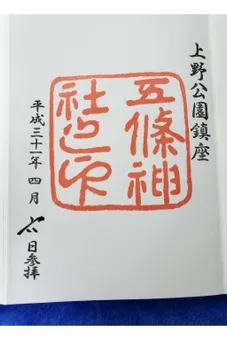 上野公園鎮座
五條神
社之印
平成三十一年 四月
日参拝